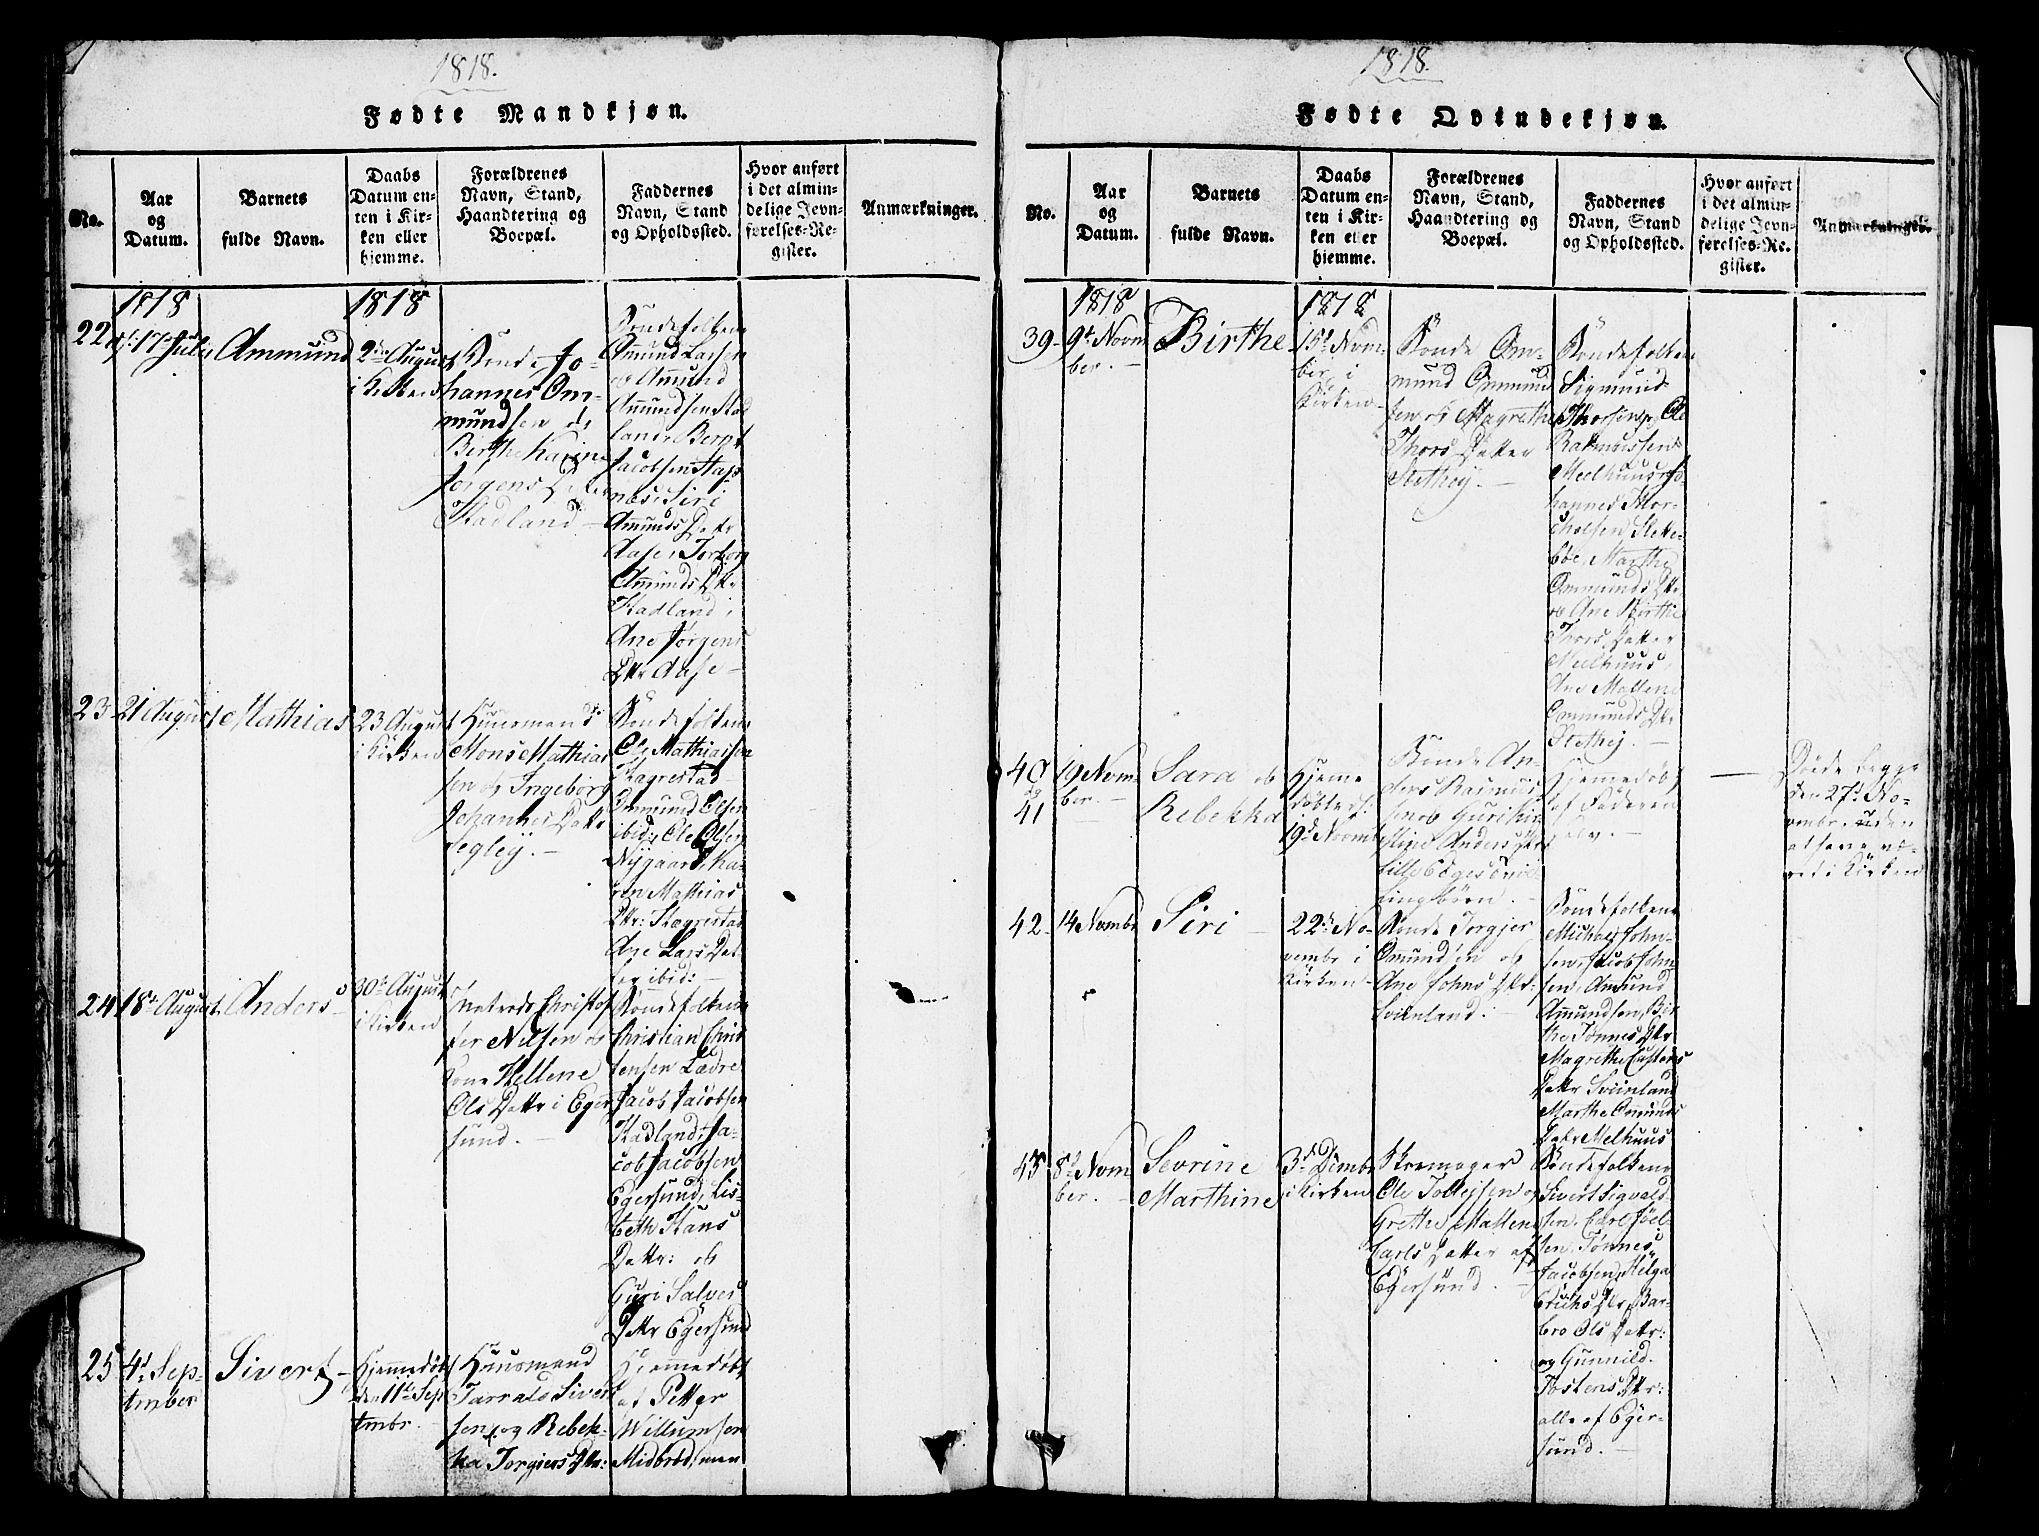 1818.
Fødte Mandkjøn.
No.
Aar
og
Datum.
Barnets
fulde Navn.
Daabs
Datum en-
ten i Kir-
ken eller
hjemme.
Forældrenes
Navn, Stand,
Haandtering og
Boepæl.
Faddernes
Navn, Stand
og Opholdssted.
Hvor anført
i det almin-
delige Jevn-
førelses-Re-
gister.
Anmærkninger.
1818
1818
22
17 Julii
Ammund
2den August
i Kirken
Bonde Jo-
hannes Om-
mundsen og
Birthe Karine
Jørgens Datter
Stadland
Bondefolkene
Omund Larsen
og Amund
Amundsen Stad
land, Bergt
Jacobsen Stap
næs, Siri
Amunds Dattr
Aase, Torborg
Amunds Dtr
Stadland,
Ane Jørgens
Dttr Aase
23
21 August
Mathias
23 August
i Kirken
Huusmand
Mons Mathias
sen og Ingeborg
Johannes Dattr
Segley.
Bondefolkene
Ole Mathiassen
Skagrestad
Ommund Olsen
ibid, Ole Olsen
Nygaard, Ka-
ren Mathias
Dttr: Skægrestad
Ane Lars Dat-
ter ibid:
24
18de August
Anders
30te August
i Kirken
Matros Christof
fer Nilsen og
Kone Hellene
Ols Dattr i Eger
sund.
Bondefolkene
Christian Chris
tensen Lædre
Jacob Jacobsen
Stadland, Ja-
cob Jacobsen
Egersund, Lis-
beth Hans
Dattr: og
Guri Salves
Dattr Egersund
25
4de Sep-
tmber
Sivert
Hjemmedøbt
den 11te Sep
tmbr.
Huusmand
Tarrald Sivert
sen og Rebek-
ka Torgiers Dtr:
Hjemmedøbt
af Petter
Willumsen
Midbrød, men
1818.
Fødte Qvindekjøn.
No.
Aar
og
Datum.
Barnets
fulde Navn.
Daabs
Datum en-
ten i Kir-
ken eller
hjemme.
Forældrenes
Navn, Stand,
Haandtering og
Boepæl.
Faddernes
Navn, Stand
og Opholdssted.
Hvor anført
i det almin-
delige Jevn-
førelses-Re-
gister.
Anmærkninger.
1818
1818
39
9de Novm
ber.
Birthe
15de Novm-
ber, i
Kirken
Bonde Om-
mund Ommund
sen og Magrethe
Thors Datter
Slethey.
Bondefolkene
Sigmund
Thorsen, Ole
Rasmussen
Meelhuus, Jo-
hannes Thor-
chelsen Slette-
bøe, Marthe
Ommunds Dtr
og Ane Birthe
Thors Datter
Meelhuus,
Ane Mallene
Ommunds Dtr
Slethej.
40
og
41
19 Novm-
ber.
Sara og
Rebekka
Hjeme
døbt d:
19de Novmb
Bonde An-
ders Rasmus
sen og Guri Kir
stine Anders Dtr
Lille Eges Tvil
lingbørn.
Hjemmedøbt
af Faderen
selv.
Døde begge
den 27de No-
vembr. uden
at have væ-
ret i Kirken
42
14 Novmbr
Siri
22de No-
vembr i
Kirken
Bonde Torgjer
Omundsen og
Ane Johns Dtr
Svienland.
Bondefolkene
Michael John-
sen, Jacob John
sen, Amund
Amundsen, Bir
the Tønnes Dtr
Magrethe Casters
Dattr Sviinland
Marthe Omunds
Dattr Melhuus
43
8de Novm
ber.
Sevrine
Marthine
3de Decmbr
i Kirken
Skoemager
Ole Tollejsen og
Grethe Mallene
Carls Datter af
Egersund.
Bondefolkene
Sivert Sigvald-
sen, Carl Joel-
sen, Tønnes
Jacobsen, Helga
Erichs Dtr, Bar-
bro Ols Dattr:
og Gunnild
Tostens Dtr:
alle af Eger-
sund.